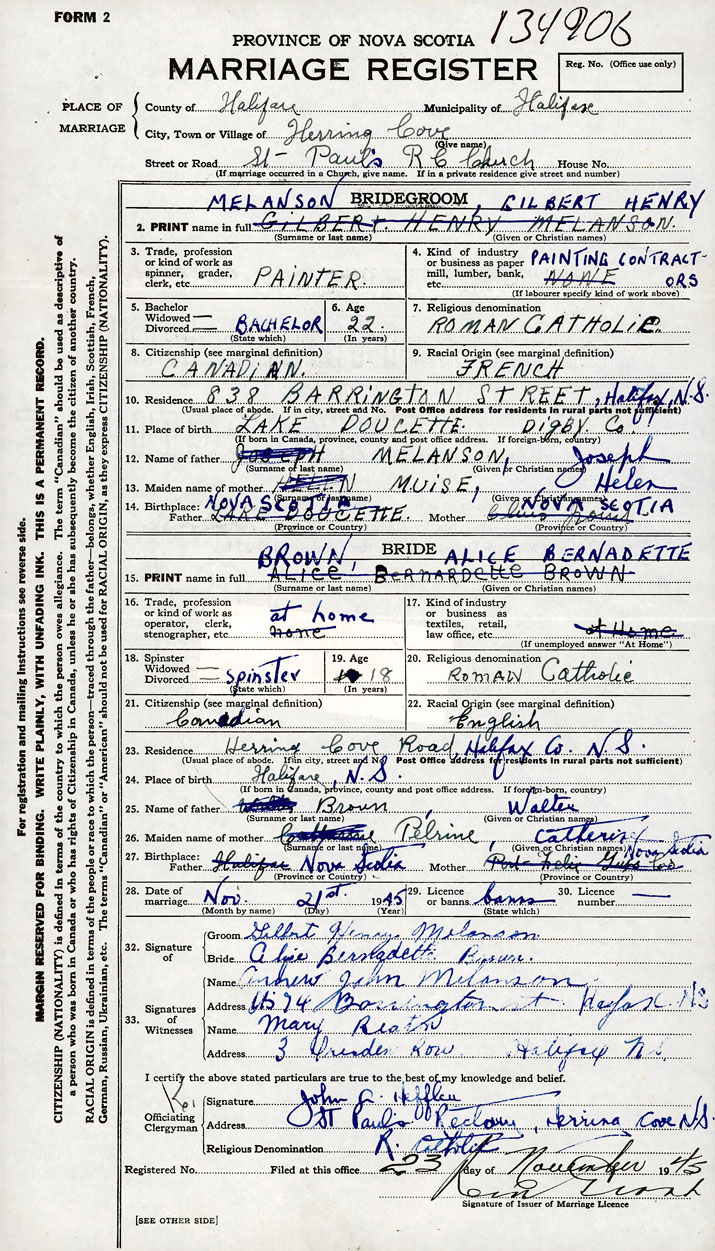 FORM 2
134906
PROVINCE OF NOVA SCOTIA
MARRIAGE REGISTER
Reg. No. (Office use only)
PLACE OF MARRIAGE
County of Halifax Municipality of Halifax
City, Town or Village of Herring Cove
(Give name)
Street or Road St- Paul's R C Church House No.
(If marriage occurred in a Church, give name. If in a private residence give street and number)
MELANSON, BRIDEGROOM, GILBERT HENRY
2. PRINT name in full GILBERT. HENRY MELANSON.
(Surname or last name) (Given or Christian names)
3. Trade, profession or kind of work as spinner, grader, clerk, etc. PAINTER.
4. Kind of industry or business as paper mill, lumber, bank, etc. PAINTING CONTRACTORS NONE
(If labourer specify kind of work above)
5. Bachelor Widowed Divorced BACHELOR
(State which)
6. Age 22.
(In years)
7. Religious denomination ROMAN CATHOLIC.
8. Citizenship (see marginal definition) CANADIAN.
9. Racial Origin (see marginal definition) FRENCH
10. Residence 838 BARRINGTON STREET, Halifax, N.S.
(Usual place of abode. If in city, street and No. Post Office address for residents in rural parts not sufficient)
11. Place of birth LAKE DOUCETTE. DIGBY Co.
(If born in Canada, province, county and post office address. If foreign-born, country)
12. Name of father JOSEPH MELANSON, Joseph
(Surname or last name) (Given or Christian names)
13. Maiden name of mother HELEN MUISE, Helen
(Surname or last name) (Given or Christian names)
14. Birthplace: Father NOVA SCOTIA LAKE DOUCETTE. Mother NOVA SCOTIA
(Province or Country) (Province or Country)
BROWN, BRIDE ALICE BERNADETTE
15. PRINT name in full ALICE BERNARDETTE BROWN
(Surname or last name) (Given or Christian names)
16. Trade, profession or kind of work as operator, clerk, stenographer, etc. at home none
17. Kind of industry or business as textiles, retail, law office, etc. at Home
(If unemployed answer "At Home")
18. Spinster Widowed Divorced Spinster
(State which)
19. Age 18
(In years)
20. Religious denomination ROMAN Catholic
21. Citizenship (see marginal definition) Canadian
22. Racial Origin (see marginal definition) English
23. Residence Herring Cove Road, Halifax Co. N.S.
(Usual place of abode. If in city, street and No. Post Office address for residents in rural parts not sufficient)
24. Place of birth Halifax, N.S.
(If born in Canada, province, county and post office address. If foreign-born, country)
25. Name of father Brown, Walter
(Surname or last name) (Given or Christian names)
26. Maiden name of mother Pelrine, Catherine
(Surname or last name) (Given or Christian names)
27. Birthplace: Father Halifax Nova Scotia Mother Nova Scotia
(Province or Country) (Province or Country)
28. Date of marriage Nov. 21st. 1945
(Month by name) (Day) (Year)
29. Licence or banns. banns
(State which)
30. Licence number
32. Signature of
Groom Gilbert Henry Melanson
Bride Alice Bernadette Brown.
33. Signatures of Witnesses
Name Andrew John Melanson
Address Barrington St Halifax NS
Name Mary
Address 3 Dresden Row Halifax N.S.
I certify the above stated particulars are true to the best of my knowledge and belief.
Officiating Clergyman
Signature John
Address St Paul's Rectory, Herring Cove N.S.
Religious Denomination R. Catholic
Registered No. Filed at this office 23 day of November 1945
Signature of Issuer of Marriage Licence
[SEE OTHER SIDE]
For registration and mailing instructions see reverse side.
MARGIN RESERVED FOR BINDING. WRITE PLAINLY, WITH UNFADING INK. THIS IS A PERMANENT RECORD.
CITIZENSHIP (NATIONALITY) is defined in terms of the country to which the person owes allegiance. The term "Canadian" should be used as descriptive of
a person who was born in Canada or who has rights of Citizenship in Canada, unless he or she has subsequently become the citizen of another country.
RACIAL ORIGIN is defined in terms of the people or race to which the person—traced through the father—belongs, whether English, Irish, Scottish, French,
German, Russian, Ukrainian, etc. The terms "Canadian" or "American" should not be used for RACIAL ORIGIN, as they express CITIZENSHIP (NATIONALITY).